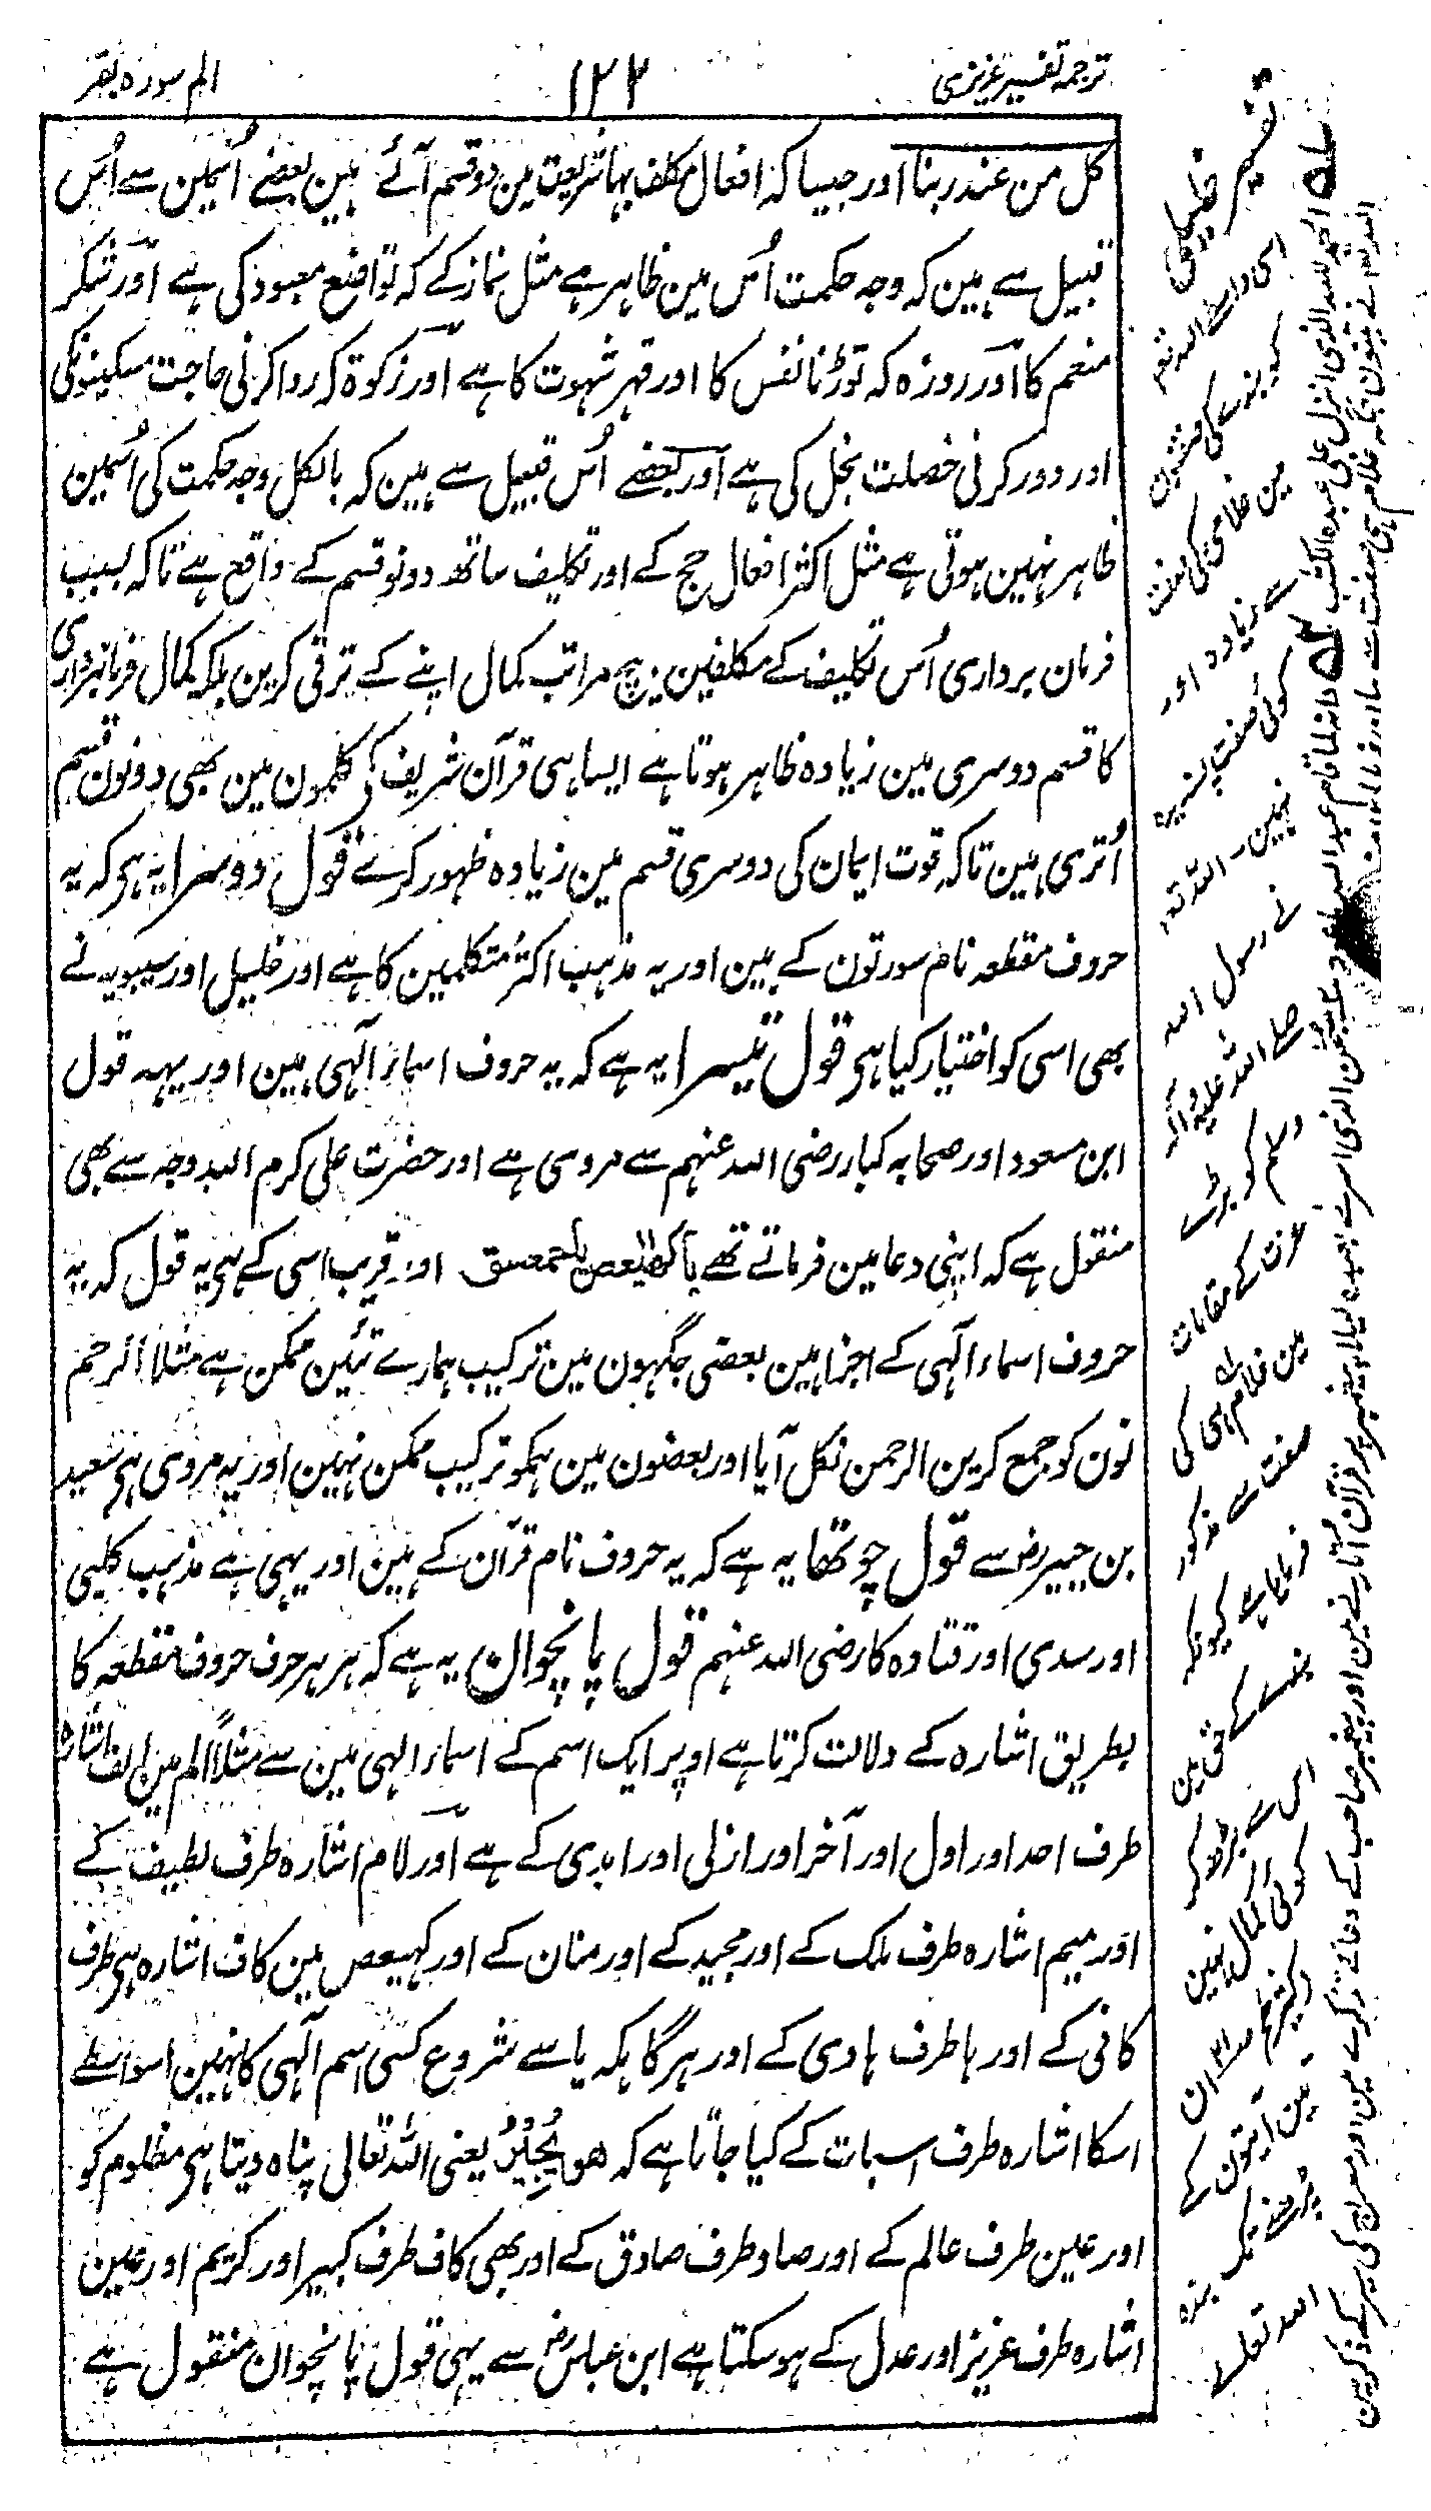 ترجمہ تفسیر عزیزی
۱۲۲
الم سورہ بقر
کل من عند ربنا اور جیسا کہ افعال مکلف بہا شریعت مین دو قسم آئے ہین بعضے اُنمین سے اُس
قبیل سے ہین کہ وجہ حکمت اُس مین ظاہر ہے مثل نماز کے کہ تواضع معبود کی ہے اور شکر
منعم کا اور روزہ کہ توڑنا نفس کا اور قہر شہوت کا ہے اور زکوۃ کہ روا کرنی حاجت مسکینونکی
اور دور کرنی خصلت بخل کی ہے اور بعضے اُس قبیل سے ہین کہ بالکل وجہ حکمت کی اُسمین
ظاہر نہین ہوتی ہے مثل اکثر افعال حج کے اور تکلیف ساتھ دونو قسم کے واقع ہے تاکہ بسبب
فرمان برداری اُس تکلیف کے مکلفین بیچ مراتب کمال اپنے کے ترقی کرین بلکہ کمال فرمانبرداری
کا قسم دوسری مین زیادہ ظاہر ہوتا ہے ایسا ہی قرآن شریف کی کلمون مین بھی دونون قسم
اُتری ہین تاکہ قوت ایمان کی دوسری قسم مین زیادہ ظہور کرے قول دوسرا یہ ہی کہ یہ
حروف مقطعہ نام سورتون کے ہین اور یہ مذہب اکثر متکلمین کا ہے اور خلیل اور سیبویہ نے
بھی اسی کو اختیار کیا ہی قول تیسرا یہ ہے کہ یہ حروف اسماء الٰہی ہین اور یہہ قول
ابن مسعود اور صحابہ کبار رضی اللہ عنہم سے مروی ہے اور حضرت علی کرم اللہ وجہ سے بھی
منقول ہے کہ اپنی دعا مین فرماتے تھے یا کھیعص یا حمعسق اور قریب اسی کے ہی یہ قول کہ یہ
حروف اسماء الٰہی کے اجزا ہین بعضی جگہون مین ترکیب ہمارے تئین ممکن ہے مثلا الر حم
نون کو جمع کرین الرحمن نکل آیا اور بعضون مین ہمکو ترکیب ممکن نہین اور یہ مروی ہی سعید
بن جبیر رض سے قول چوتھا یہ ہے کہ یہ حروف نام قرآن کے ہین اور یہی ہے مذہب کلبی
اور سدی اور قتادہ کا رضی اللہ عنہم قول پانچوان یہ ہے کہ ہر ہر حرف حروف مقطعہ کا
بطریق اشارہ کے دلالت کرتا ہے اوپر ایک اسم کے اسماء الہی مین سے مثلاً الم مین الف اشارہ
طرف احد اور اول اور آخر اور ازلی اور ابدی کے ہے اور لام اشارہ طرف لطیف کے
اور میم اشارہ طرف ملک کے اور مجید کے اور منان کے اور کہیعص مین کاف اشارہ ہی طرف
کافی کے اور ہا طرف ہادی کے اور ہر گاہ کہ یا سے شروع کسی اسم الٰہی کا نہین اسواسطے
اسکا اشارہ طرف اسبات کے کیا جاتا ہے کہ ھو یُجِیْرُ یعنی اللہ تعالی پناہ دیتا ہی مظلوم کو
اور عین طرف عالم کے اور صاد طرف صادق کے اور بھی کاف طرف کبیر اور کریم اور عین
اشارہ طرف عزیز اور عدل کے ہو سکتا ہے ابن عباس رض سے یہی قول پانچوان منقول ہے
اسی واسطے اللہ تعم
کو بندے کی صفتین
مین غلامی کی صفت
سے زیادہ اور
کوئی صفت پسندیدہ
نہین۔ اللہ تعم
نے رسول اللہ
صلے اللہ علیہ وآلہ
وسلم کو بڑے
عزت کے مقامات
مین غلام ہی کی
صفت سے مذکور
فرمایا ہے کیونکہ
بندے کے حق مین
اس سے بڑھکر
کوئی کمال نہین
تین آیتون کے
بندہ
اللہ تعالے
الحمد للہ الذی انزل علی عبدہ الکتب